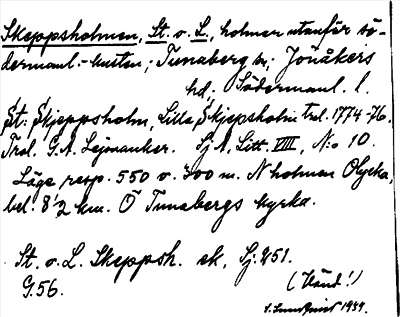 Skeppsholmen, St. o. L., holmar utanför sö-
dermanl.-kusten; Tunaberg sn; Jönåkers
hd; Södermanl. l.
St: Skjeppsholm, Lilla Skjepsholm trol. 1774-76.
Trol. G. A. Leijonancker. Sj A, Litt. VIII, N:o 10.
Läge resp. 550 o. 700 m. N holmen Olycka,
bel. 8 1/2 km. Ö Tunabergs kyrka.
St. o. L. Skeppsh. ek, Sj. 251.
G.56.
(Vänd!)
S. Lundqvist 1934.